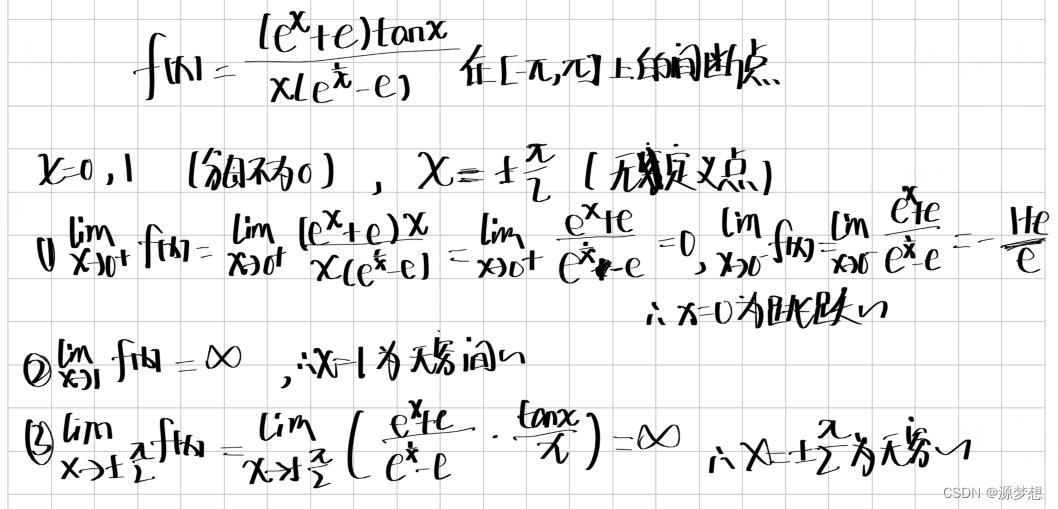 f(x) = \frac{(e^x+e)tanx}{x(e^{\frac{1}{x}}-e)} 在[-π,π]上的间断点
x=0,1 (分母不为0), x=±\frac{π}{2} (无定义点)
① \lim_{x→0^+} f(x) = \lim_{x→0^+} \frac{(e^x+e)x}{x(e^{\frac{1}{x}}-e)} = \lim_{x→0^+} \frac{e^x+e}{e^{\frac{1}{x}}-e} = 0, \lim_{x→0^-} f(x) = \lim_{x→0^-} \frac{e^x+e}{e^{\frac{1}{x}}-e} = -\frac{1+e}{e}
∴ x=0为跳跃~
② \lim_{x→1} f(x) = ∞, ∴x=1为无穷间~
③ \lim_{x→±\frac{π}{2}} f(x) = \lim_{x→±\frac{π}{2}} ( \frac{e^x+e}{e^{\frac{1}{x}}-e} · \frac{tanx}{x} ) = ∞ ∴ x=±\frac{π}{2}为无穷~
CSDN @源梦想